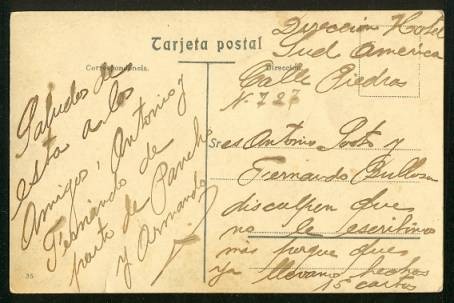 Tarjeta postal
Correspondencia.
Dirección.
Saludos de
esta a los
Amigos, Antonio y
Fernando de
parte de Pancho
y Armando
35
Direccion Hotel
Sud America
Calle Piedras
N. 727
Sres Antonio y
Fernando
disculpen que
no le escribimos
mas porque ques
ya llevamos hechas
15 cartas